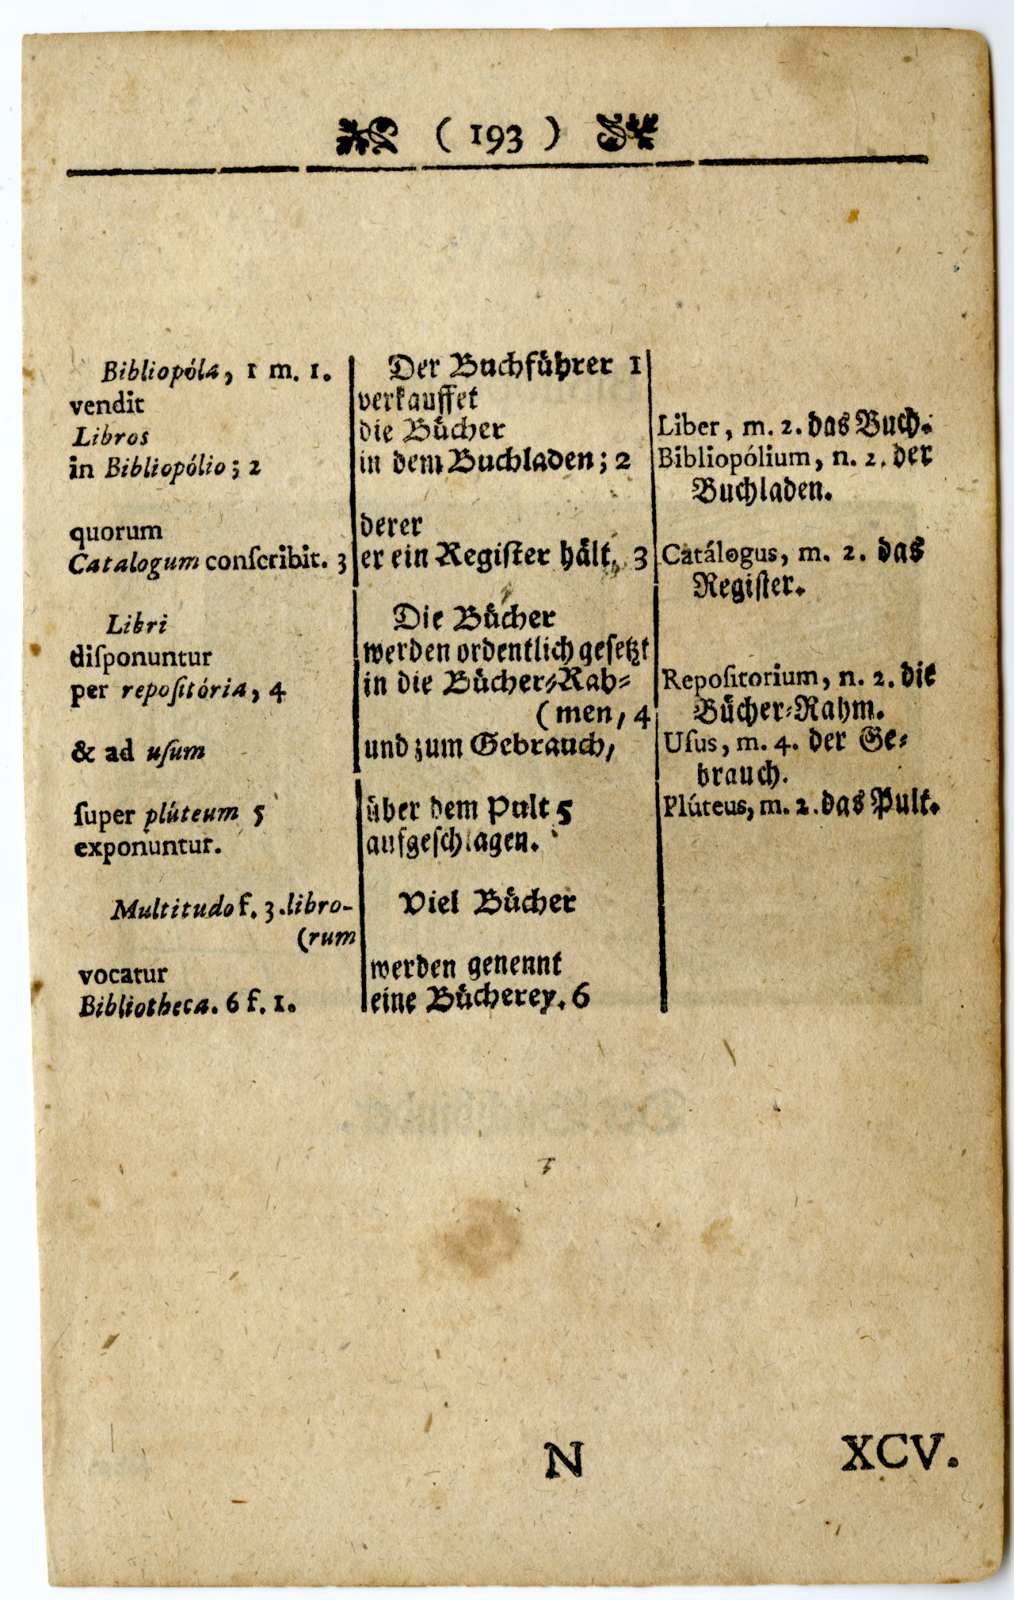 ( 193 )
Bibliopóla, 1 m. 1.
vendit
Libros
in Bibliopólio; 2
quorum
Catalogum conſcribit. 3
Libri
diſponuntur
per repoſitória, 4
& ad uſum
ſuper plúteum 5
exponuntur.
Multitudo f. 3. libro-
(rum
vocatur
Bibliotheca. 6 f. 1.
Der Buchfuͤhrer 1
verkauffet
die Buͤcher
in dem Buchladen; 2
derer
er ein Regiſter haͤlt, 3
Die Buͤcher
werden ordentlich geſetzt
in die Buͤcher⸗Rah⸗
(men, 4
und zum Gebrauch,
uͤber dem Pult 5
aufgeſchlagen.
Viel Buͤcher
werden genennt
eine Buͤcherey. 6
Liber, m. 2. das Buch.
Bibliopólium, n. 2. der
Buchladen.
Catálogus, m. 2. das
Regiſter.
Repoſitorium, n. 2. die
Buͤcher⸗Rahm.
Uſus, m. 4. der Ge⸗
brauch.
Plúteus, m. 2. das Pult.
N
XCV.